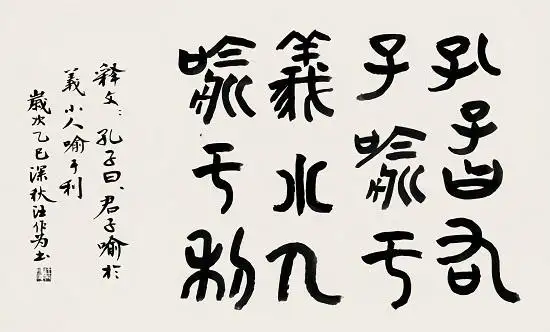 孔子曰君
子喻于
義小人
喻于利
释文：孔子曰、君子喻於
義小人喻于利
歲次乙巳深秋汪作为书